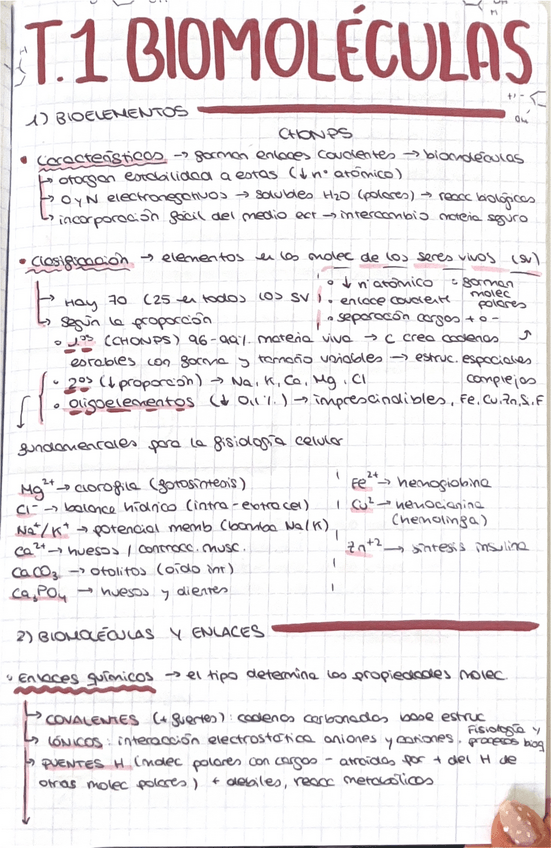 T.1 BIOMOLÉCULAS
1) BIOELEMENTOS
CHONPS
• Características → forman enlaces covalentes → biomoléculas
↳ otorgan estabilidad a estas (↓ nº atómico)
↳ O y N electronegativos → solubles H2O (polares) → reacc biológicas
↳ incorporación fácil del medio ext → intercambio materia seguro
• Clasificación → elementos en las molec de los seres vivos (sv)
↳ Hay 70 (25 en todos los SV)
↳ según la proporción
• ↓ nº atómico : forman molec polares
• enlace covalent
• separación cargas + o -
• 1os (CHONPS) 96-99% materia viva → C crea cadenas
estables con forma y tamaño variables → estruc. espaciales complejas
• 2os (↓ proporción) → Na, K, Ca, Mg, Cl
• oligoelementos (↓ 0,1%) → imprescindibles, Fe, Cu, Zn, S, F
fundamentales para la fisiología celular
Mg2+ → clorofila (fotosíntesis)
Cl- → balance hídrico (intra-extracel)
Na+/K+ → potencial memb (bomba Na/K)
Ca2+ → huesos / contracc. musc.
CaCO3 → otolitos (oído int)
Ca3PO4 → huesos y dientes
Fe2+ → hemoglobina
Cu2- → hemocianina
(hemolinfa)
Zn+2 → síntesis insulina
2) BIOMOLÉCULAS Y ENLACES
• Enlaces químicos → el tipo determina las propiedades molec.
↳ COVALENTES (+ fuertes): cadenas carbonadas base estruc
↳ IÓNICOS: interacción electrostática aniones y cationes. Fisiología y procesos biog
↳ PUENTES H (molec polares con cargas - atraídas por + del H de
otras molec polares) + debiles, reacc metabólicas